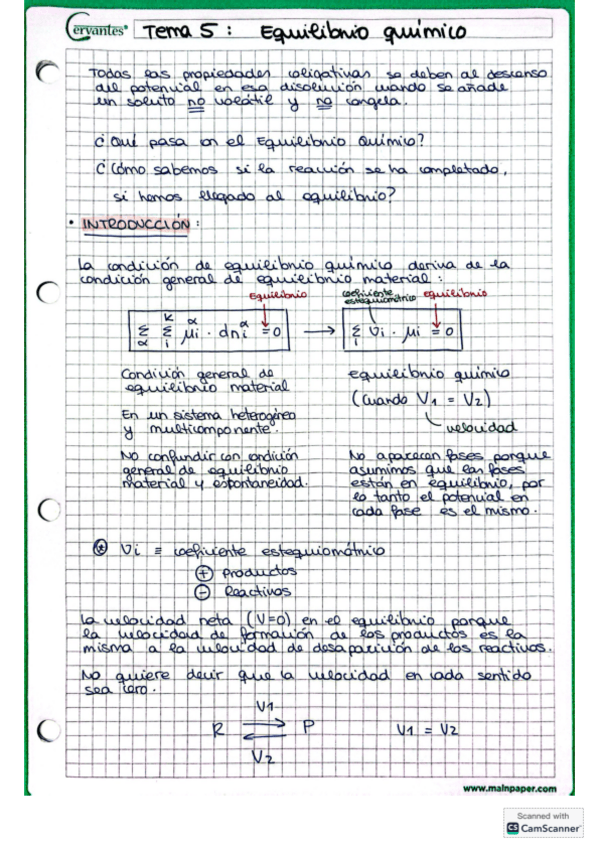 Cervantes® Tema 5: Equilibrio químico
Todas las propiedades coligativas se deben al descenso
del potencial en esa disolución cuando se añade
un soluto no volátil y no congela.
¿Qué pasa con el Equilibrio Químico?
¿Cómo sabemos si la reacción se ha completado,
si hemos llegado al equilibrio?
• INTRODUCCIÓN:
La condición de equilibrio químico deriva de la
condición general de equilibrio material:
equilibrio
coeficiente estequiométrico
equilibrio
Σα Σi^K μi^α · dni^α = 0 → Σi νi · μi = 0
Condición general de
equilibrio material
En un sistema heterogéneo
y multicomponente.
No confundir con condición
general de equilibrio
material y espontaneidad.
equilibrio químico
(cuando V1 = V2)
velocidad
No aparecen fases porque
asumimos que las fases
están en equilibrio, por
lo tanto el potencial en
cada fase es el mismo.
* νi ≡ coeficiente estequiométrico
+ Productos
- Reactivos
La velocidad neta (V=0) en el equilibrio porque
la velocidad de formación de los productos es la
misma a la velocidad de desaparición de los reactivos.
No quiere decir que la velocidad en cada sentido
sea cero.
V1
R ⇌ P V1 = V2
V2
www.mainpaper.com
Scanned with
CS CamScanner